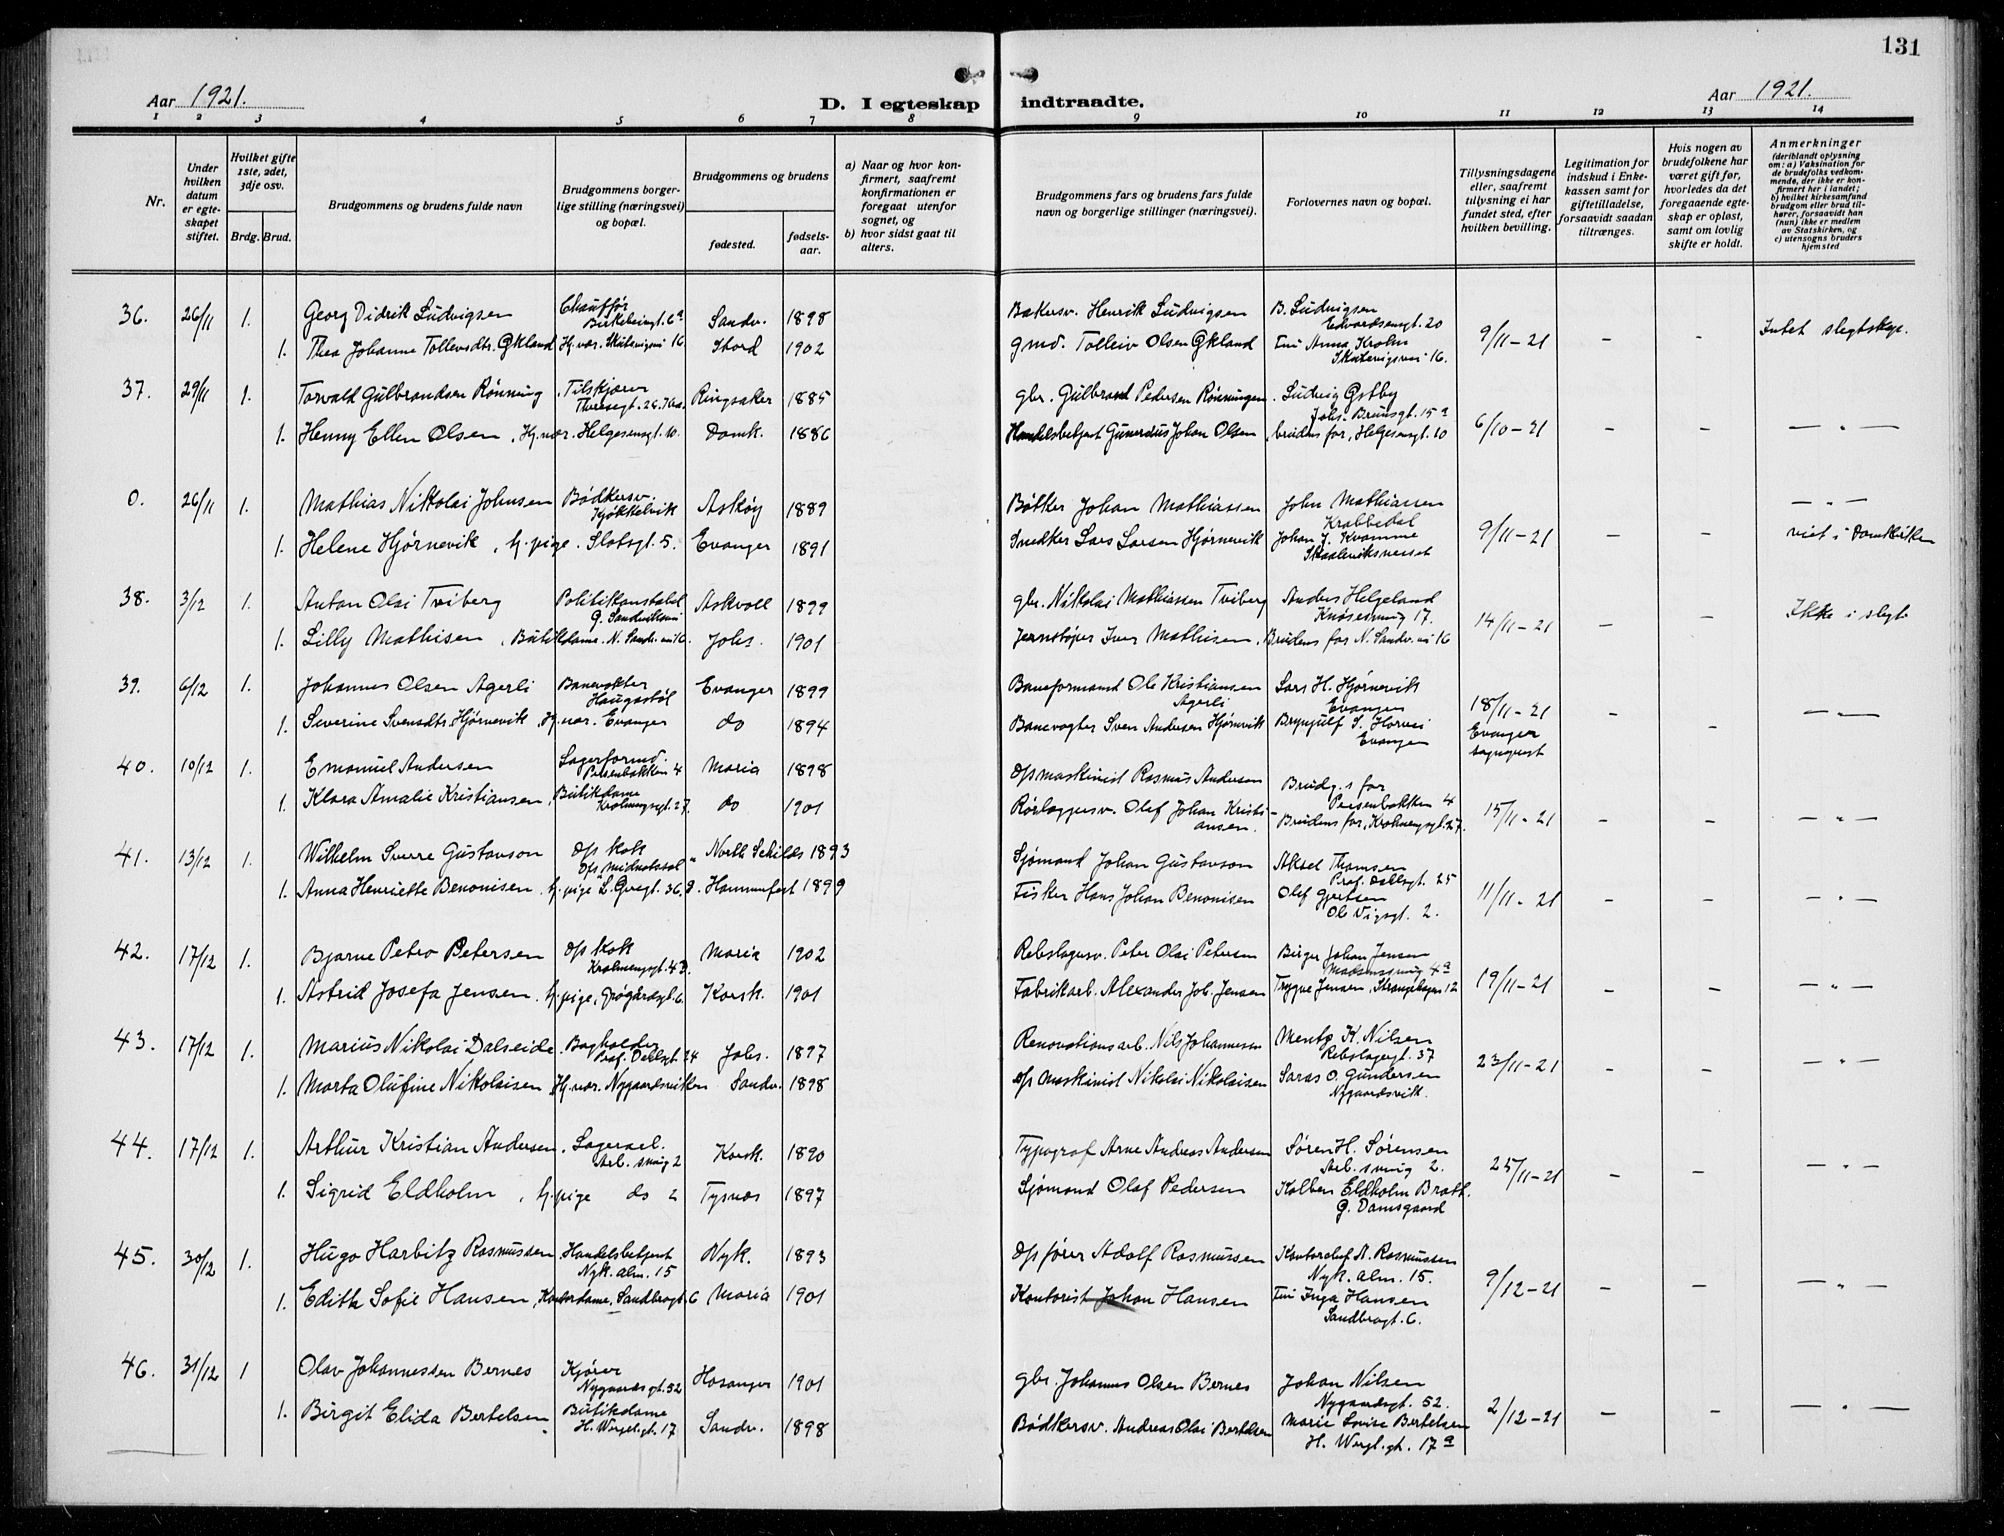 131
Aar 1921.
D. I egteskap indtraadte.
Aar 1921.
1 2 3 4 5 6 7 8 9 10 11 12 13 14
Nr.
Under hvilken datum er egteskapet stiftet.
Hvilket gifte 1ste, 2det, 3dje osv.
Brdg. Brud.
Brudgommens og brudens fulde navn
Brudgommens borgerlige stilling (næringsvei) og bopæl.
Brudgommens og brudens
fødested. fødselsaar.
a) Naar og hvor konfirmert, saafremt konfirmationen er foregaat utenfor sognet, og
b) hvor sidst gaat til alters.
Brudgommens fars og brudens fars fulde navn og borgerlige stillinger (næringsvei).
Forlovernes navn og bopæl.
Tillysningsdagene eller, saafremt tillysning ei har fundet sted, efter hvilken bevilling.
Legitimation for indskud i Enkekassen samt for giftetilladelse, forsaavidt saadan tiltrænges.
Hvis nogen av brudefolkene har været gift før, hvorledes da det foregaaende egteskap er opløst, samt om lovlig skifte er holdt.
Anmerkninger
(deriblandt oplysning om: a) Vaksination for de brudefolks vedkommende, der ikke er konfirmert her i landet; b) hvilket kirkesamfund brudgom eller brud tilhører, forsaavidt han (hun) ikke er medlem av Statskirken, og c) utensogns bruders hjemsted
36. 26/11 1. Georg Didrik Ludvigsen Chauffør Birkebeingt. 6a Sandv. 1898 Bakersv. Henrik Ludvigsen B. Ludvigsen Edvardsensgt. 20 9/11-21 - - Intet slegtskap.
1. Thea Johanne Tollevsdtr. Økland Hj. vær. Skutevigsvei 16 Stord 1902 gmd. Tolleiv Olsen Økland Fru Anna Krohn Skutevigsvei 16.
37. 29/11 1. Torvald Gulbrandsen Rønning Filskjærer Theresgt. 26 Ringsaker 1885 gbr. Gulbrand Pedersen Rønningen Ludvig Østby Johs. Brunsgt. 15a 6/10-21 - - - " -
1. Henny Ellen Olsen, Hj. vær. Helgesensgt. 10. Domk. 1886 Handelsbetjent Gunerius Johan Olsen, brudens far, Helgesensgt. 10
0. 26/11 1. Mathias Nikolai Johnsen Bødkersv. Kjøkkelvik Askøy 1889 Bøtker Johan Mathiassen John Mathiassen Krabbedal 9/11-21 - - - " -
1. Helene Hjørnevik, tj. pige. Slotsgt. 5. Evanger 1891 Snedker Lars Larsen Hjørnevik Johan J. Kvamme Skaaleviksnesset viet i Domkirken
38. 3/12 1. Anton Olai Tviberg Politikonstabel Ø. Sandviksvei Askvoll 1899 gbr. Nikolai Mathiassen Tviberg Anders Helgeland Knøsesmug 17. 14/11-21 - - Ikke i slegt
1. Lilly Mathisen, Butikdame. N. Sandv. vei 16. Johs. 1901 Jernstøper Iver Mathisen, Brudens far N. Sandv. vei 16
39. 6/12 1. Johannes Olsen Agerli Banevokter Haugastøl Evanger 1899 Baneformand Ole Kristiansen Agerli Lars H. Hjørnevik Evanger 18/11-21 Evanger sogneprest - - - " -
1. Severine Svensdtr. Hjørnevik, Hj. vær. Evanger do 1894 Banevogter Sven Andersen Hjørnevik Brynjulf S. Horvei Evanger
40. 10/12 1. Emanuel Andersen Lagerformd. Persenbakken 4 Maria 1898 d/s maskinist Rasmus Andersen Brudg.s far Persenbakken 4 15/11-21 - - - " -
1. Klara Amalie Kristiansen, Butikdame Krohnengsgt. 27. do 1901 Rørlæggersv. Olef Johan Kristiansen. Brudens far, Krohnengsgt. 27.
41. 13/12 1. Wilhelm Sverre Gustavson d/s kok d/s "Midnatssol" North Schilds 1893 Sjømand Johan Gustavson Aksel Thomsen Prof. Dahlsgt. 25 11/11-21 - - - " -
1. Anna Henriette Benonisen, tj. pige L. Øvregt. 36. Hammerfest 1899 Fisker Hans Johan Benonisen Olef Gjertsen Ole Vigsgt. 2.
42. 17/12 1. Bjarne Petro Petersen d/s kok Krohnengsgt. 43. Maria 1902 Rebslagersv. Peter Olai Petersen Birger Johan Jensen Madsmug 4a 19/11-21 - - - " -
1. Astrid Josefa Jensen, tj. pige, Frøgårdsgt. 6 Korsk. 1901 Fabrikarb. Alexander Joh. Jensen Trygve Jensen, Strangehagen 12
43. 17/12 1. Marius Nikolai Dalseide, Bogholder Prof. Dahlsgt. 24 Johs. 1897 Renovationsarb. Nils Johannesen Mentz K. Nilsen Rebslagergt. 37 23/11-21 - - - " -
1. Marta Olufine Nikolaisen Hj. vær. Nygaardsviken Sandv. 1898 d/s Maskinist Nikolai Nikolaisen Saras O. Gundersen Nygaardsvik.
44. 17/12 1. Arthur Kristian Andersen, Lagerarb. Arb. smug 2 Korsk. 1890 Typograf Arne Andreas Andersen Søren H. Sørensen Arb. smug 2. 25/11-21 - - - " -
1. Sigrid Eldholm, tj. pige do 2 Tysnes 1897 Sjømand Olaf Pedersen Kolben Eldholm Bratt. G. Damsgaard
45. 30/12 1. Hugo Harbitz Rasmussen Handelsbetjent Nyk. alm. 15 Nyk. 1893 d/s fører Adolf Rasmussen Kontorchef A. Rasmussen Nyk. alm. 15. 9/12-21 - - - " -
1. Edith Sofie Hansen, Kontordame, Sandbrogt. 6 Maria 1901 Kontorist Johan Hansen Fru Inga Hansen Sandbrogt. 6.
46. 31/12 1 Olav Johannessen Bernes Kjører Nygaardsgt. 52 Hosanger 1901 gbr. Johannes Olsen Bernes Johan Nilsen Nygaardsgt. 52. 2/12-21 - - - " -
1. Birgit Elida Bertelsen Butikdame H. Wergel. gt. 17 Sandv. 1898 Bødkersv. Andreas Olai Bertelsen Marie Lovise Bertelsen H. Wergl. gt. 17a